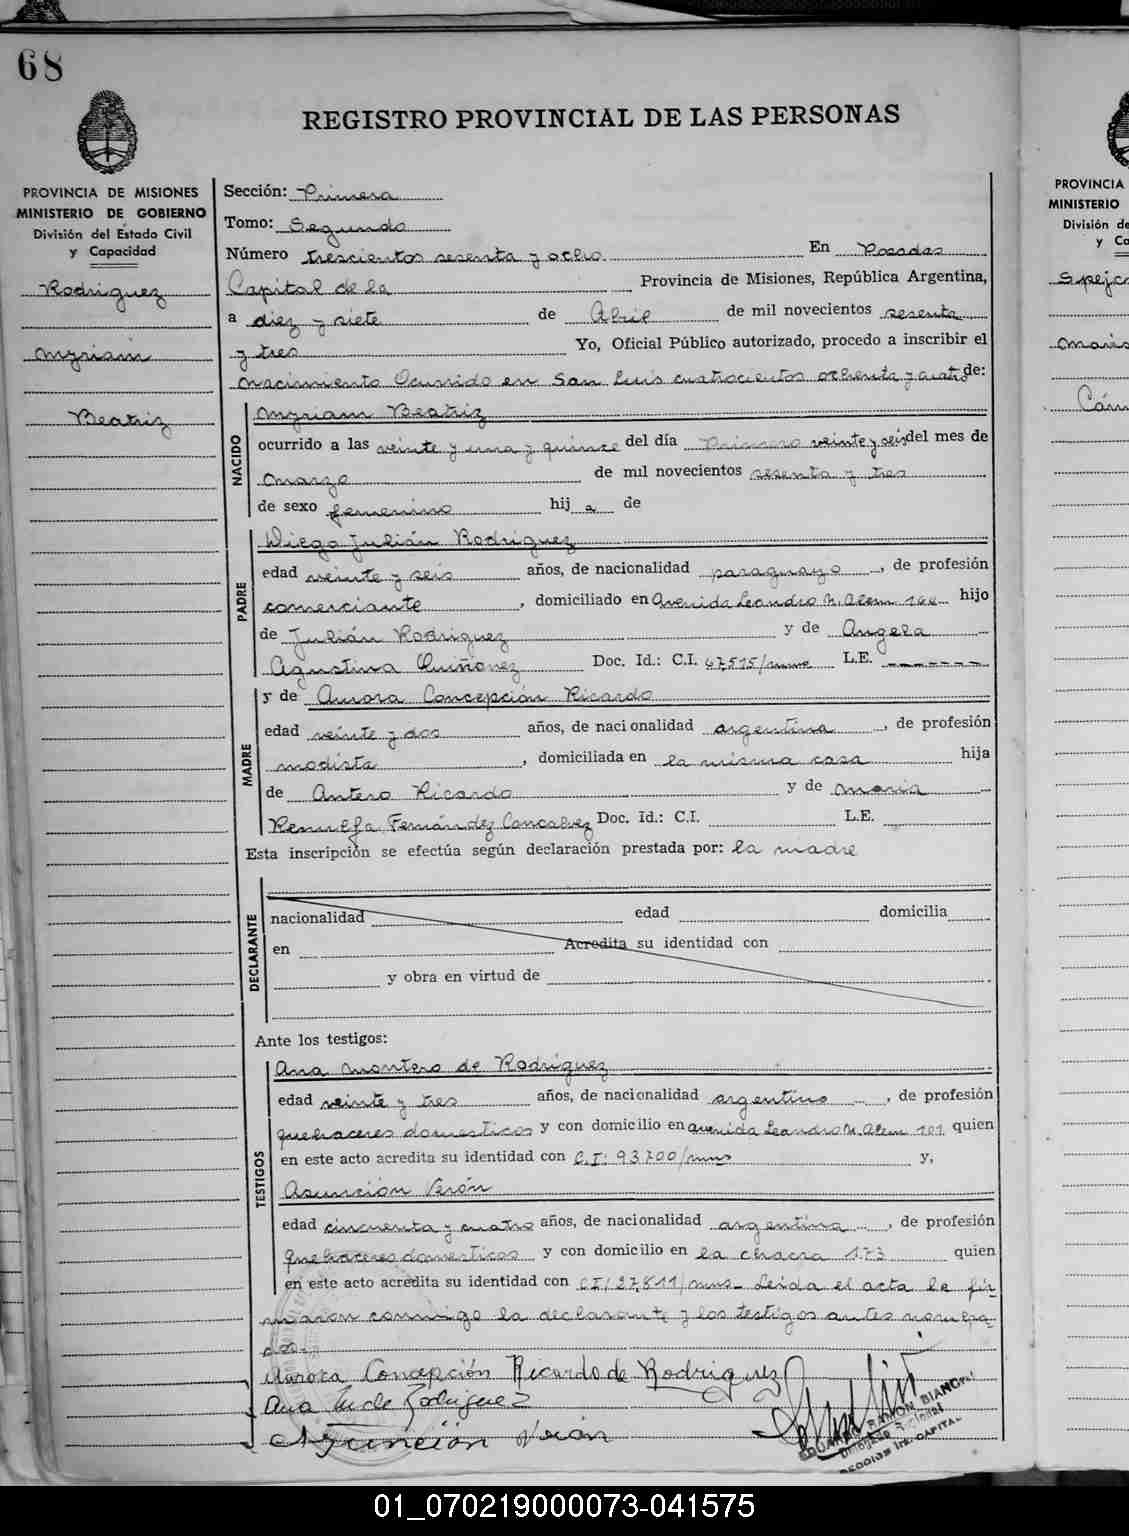 68
REGISTRO PROVINCIAL DE LAS PERSONAS
PROVINCIA DE MISIONES
MINISTERIO DE GOBIERNO
División del Estado Civil
y Capacidad
Rodriguez
Myriam
Beatriz
Sección: Primera
Tomo: Segundo
Número trescientos sesenta y ocho En Posadas
Capital de la Provincia de Misiones, República Argentina,
a diez y siete de Abril de mil novecientos sesenta
y tres Yo, Oficial Público autorizado, procedo a inscribir el
nacimiento Ocurrido en San Luis cuatrocientos ochenta y cuatro de:
NACIDO
Myriam Beatriz
ocurrido a las veinte y una y quince del día Primero veinte y seis del mes de
Marzo de mil novecientos sesenta y tres
de sexo femenino hij a de
PADRE
Diego Julián Rodriguez
edad veinte y seis años, de nacionalidad paraguayo, de profesión
comerciante, domiciliado en Avenida Leandro N. Alem hijo
de Julián Rodriguez y de Angela
Agustina Quiñonez Doc. Id.: C.I. 67,515/mnes L.E. -------
MADRE
y de Aurora Concepción Ricardo
edad veinte y dos años, de nacionalidad argentina, de profesión
modista, domiciliada en la misma casa hija
de Antero Ricardo y de Maria
Fernández Doc. Id.: C.I. L.E.
Esta inscripción se efectúa según declaración prestada por: la madre
DECLARANTE
nacionalidad edad domicilia
en Acredita su identidad con
y obra en virtud de
Ante los testigos:
TESTIGOS
Ana Montero de Rodriguez
edad veinte y tres años, de nacionalidad argentino, de profesión
quehaceres domesticos y con domicilio en avenida Leandro N. Alem 101 quien
en este acto acredita su identidad con C.I: 93700/mns y,
Asunción Verón
edad cincuenta y cuatro años, de nacionalidad argentina, de profesión
quehaceres domesticos y con domicilio en la chacra 173 quien
en este acto acredita su identidad con CI/27,811/mns- Leida el acta la fir-
maron conmigo la declarante y los testigos antes nombra-
dos.-
Aurora Concepción Ricardo de Rodriguez
Ana M de Rodriguez
Asuncion Verón
EDUARDO RAMON BIANCHI
SECCION 1ra. CAPITAL
PROVINCIA
MINISTERIO
División de
y Ca
01_070219000073-041575